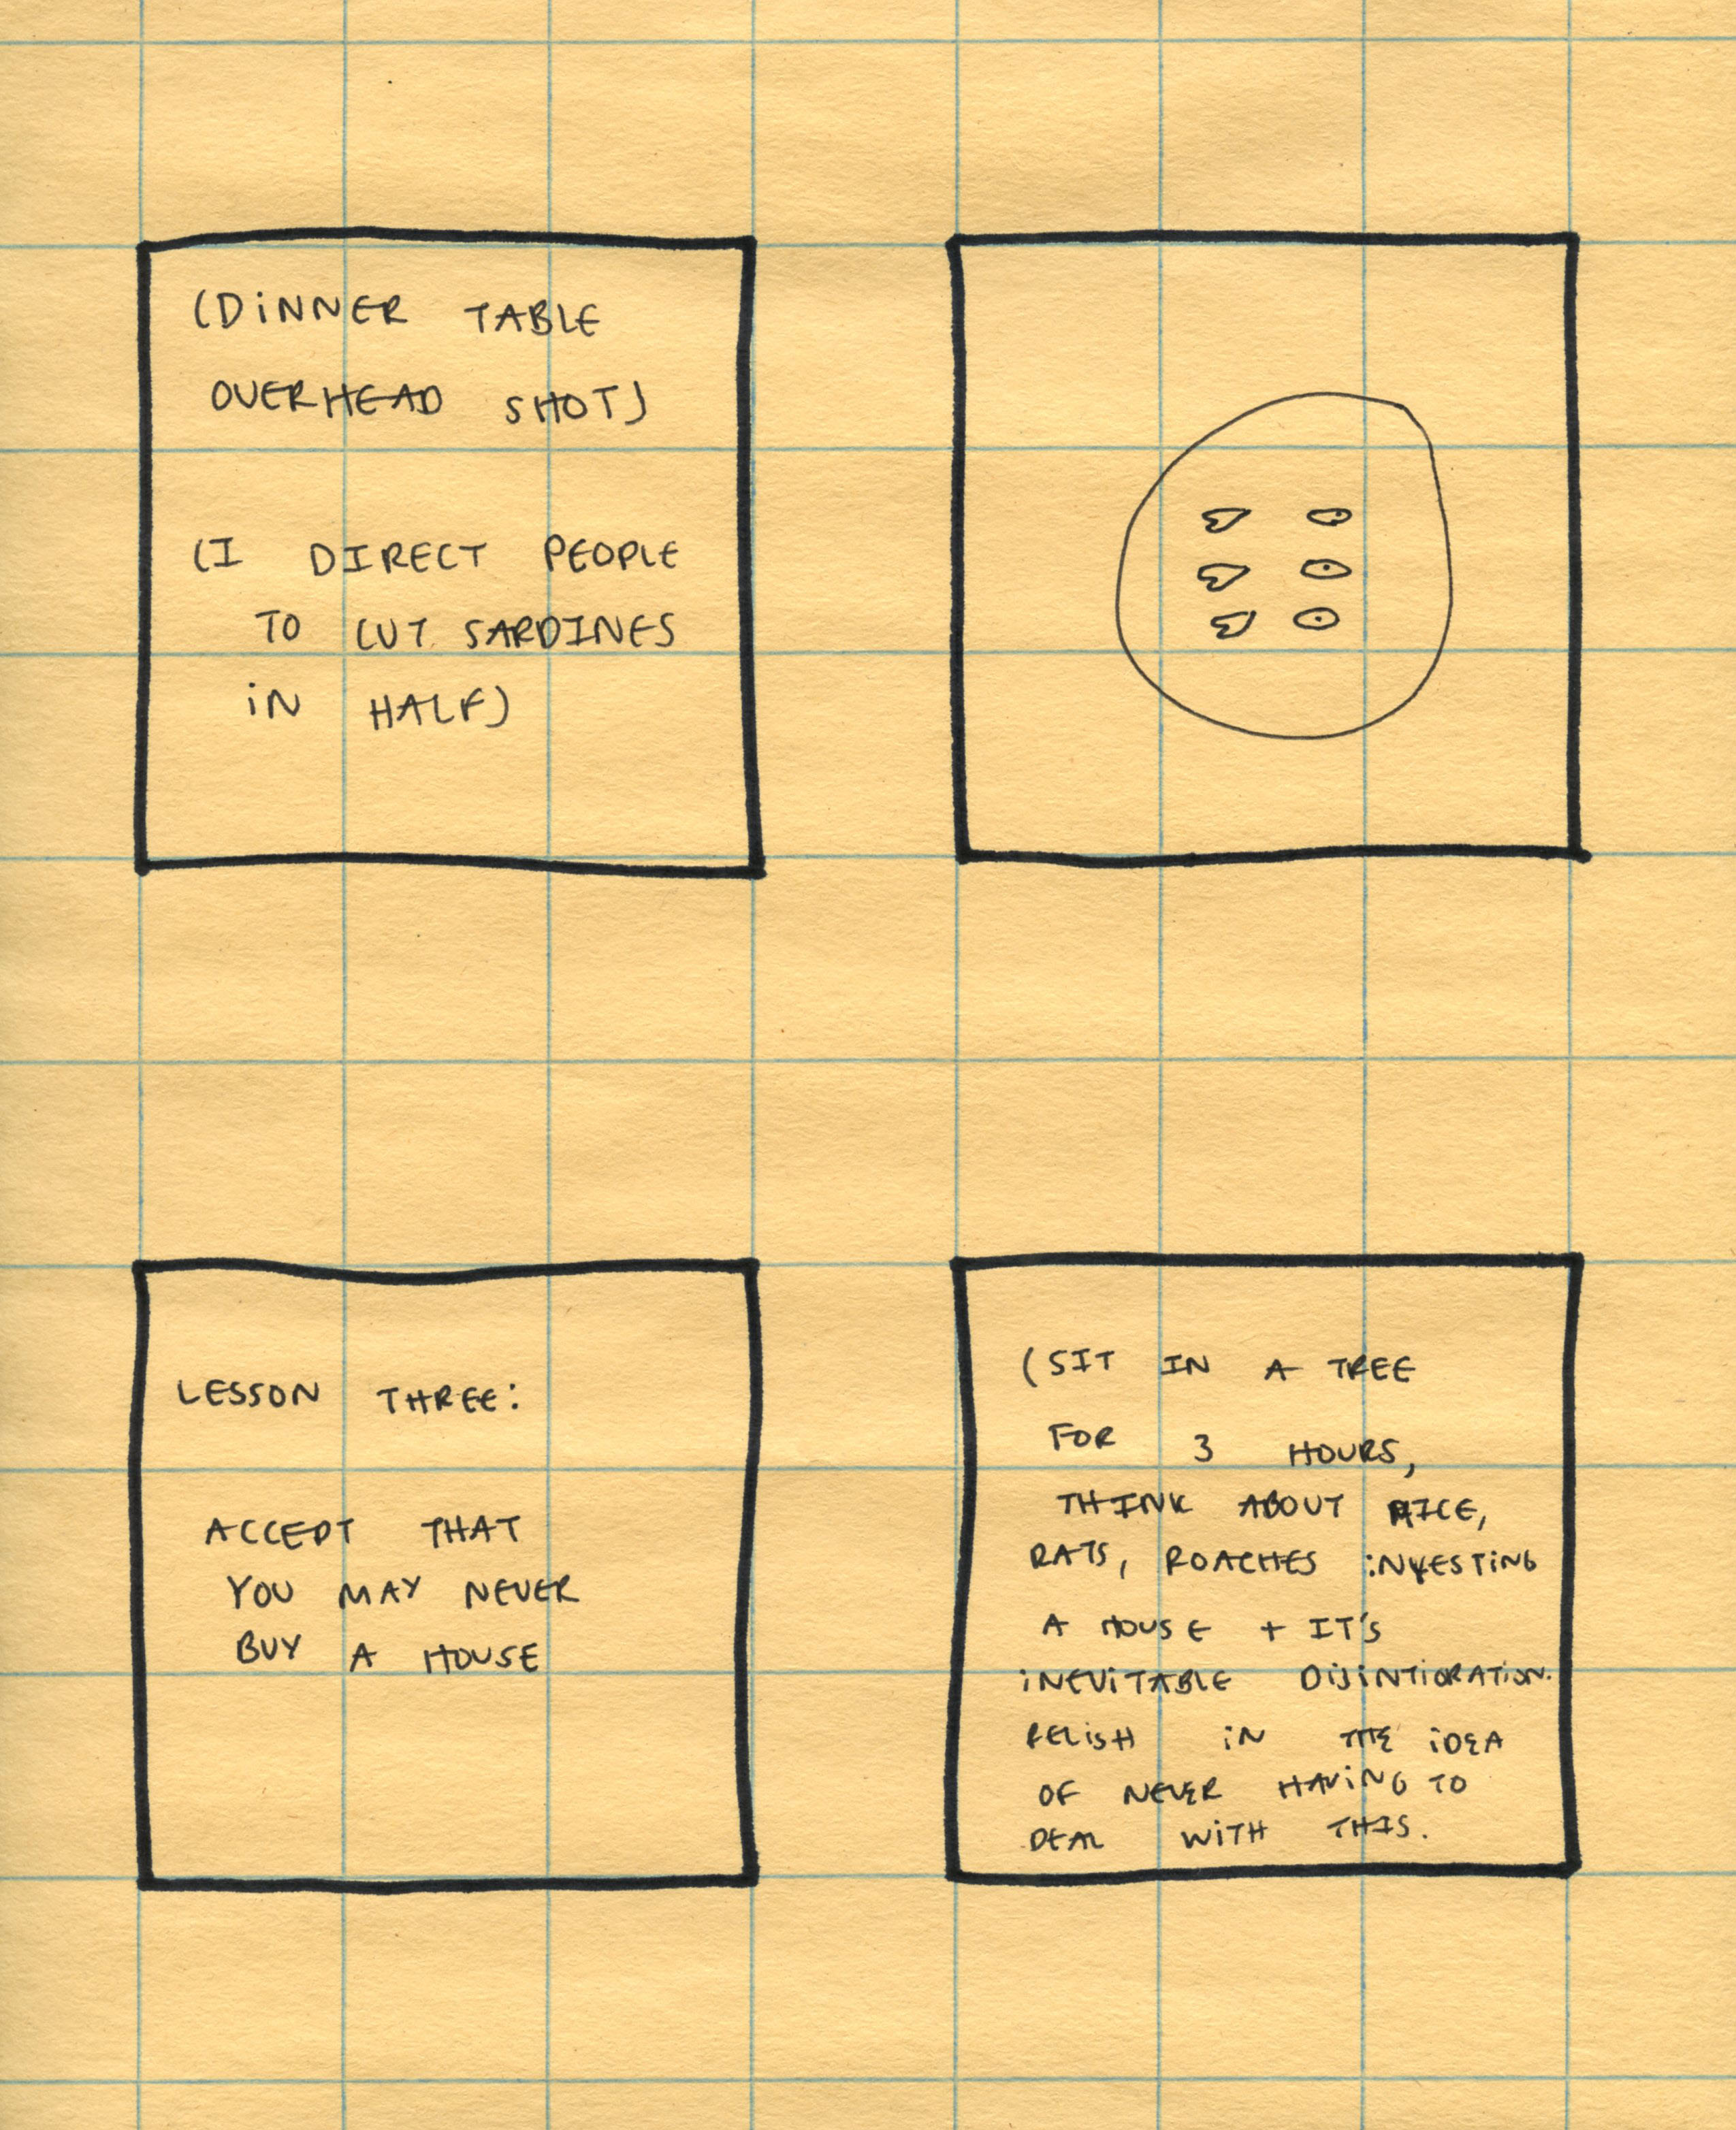 (DINNER TABLE
OVERHEAD SHOT)
(I DIRECT PEOPLE
TO CUT SARDINES
IN HALF)
LESSON THREE:
ACCEPT THAT
YOU MAY NEVER
BUY A HOUSE
(SIT IN A TREE
FOR 3 HOURS,
THINK ABOUT MICE,
RATS, ROACHES INVESTING
A HOUSE + IT'S
INEVITABLE DISINTIGRATION.
RELISH IN THE IDEA
OF NEVER HAVING TO
DEAL WITH THIS.